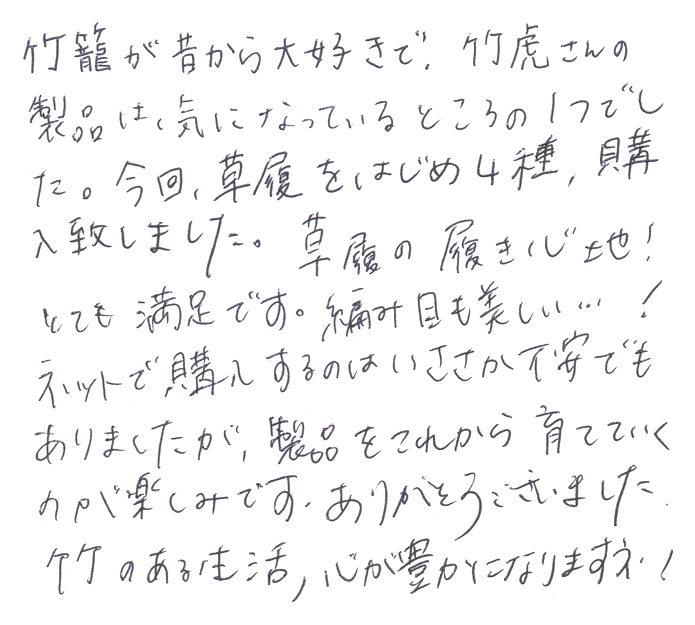 竹籠が昔から大好きで、竹虎さんの
製品は、気になっているところの1つでし
た。今回、草履をはじめ4種、購
入致しました。草履の履き心地!
とても満足です。編み目も美しい…!
ネットで購入するのはいささか不安でも
ありましたが、製品をこれから育てていく
のが楽しみです。ありがとうございました
竹のある生活、心が豊かになりますネ!